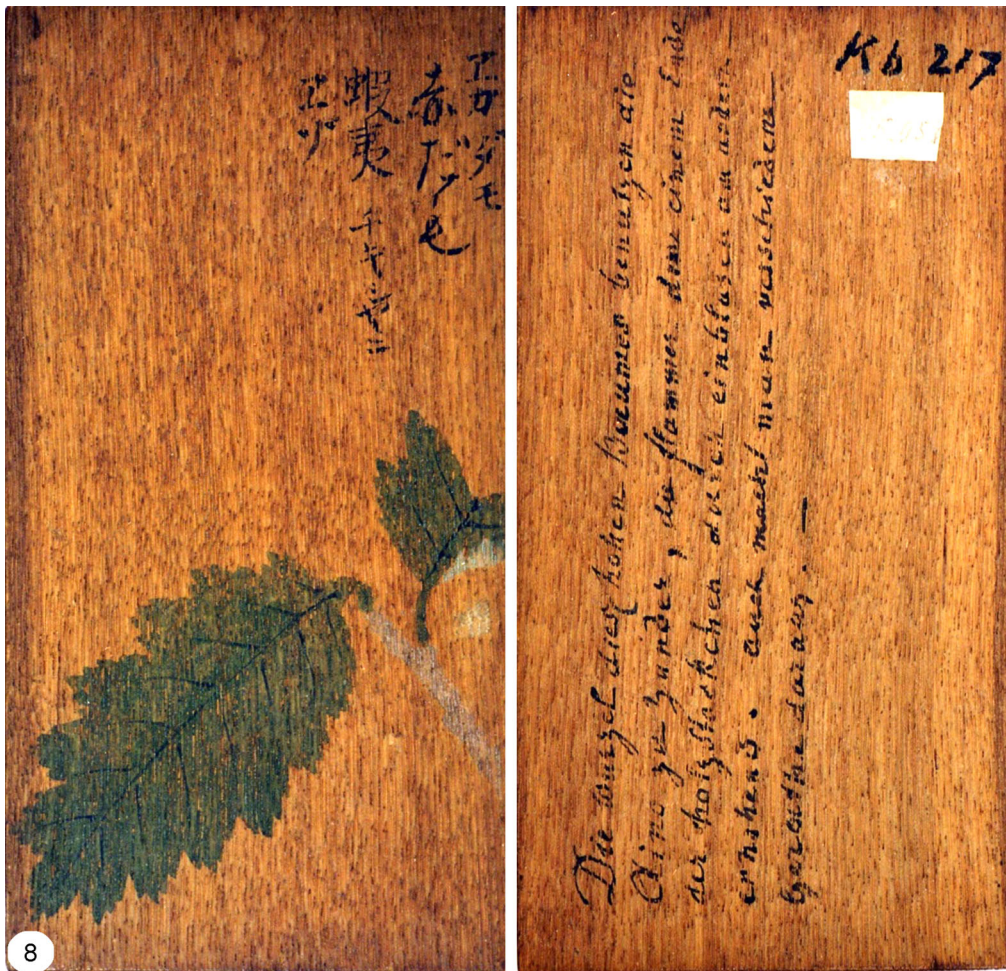 アカダモ
赤だモ
蝦夷 チキサニ
エゾ
Kb 217
Die wurzel dies hohen Baumes benutzen die
Aino zu zunder, die flamme einem Ende
der holzstückchen durch einblasen am andern
auch macht man verschiedene
geraethe daraus. —
8